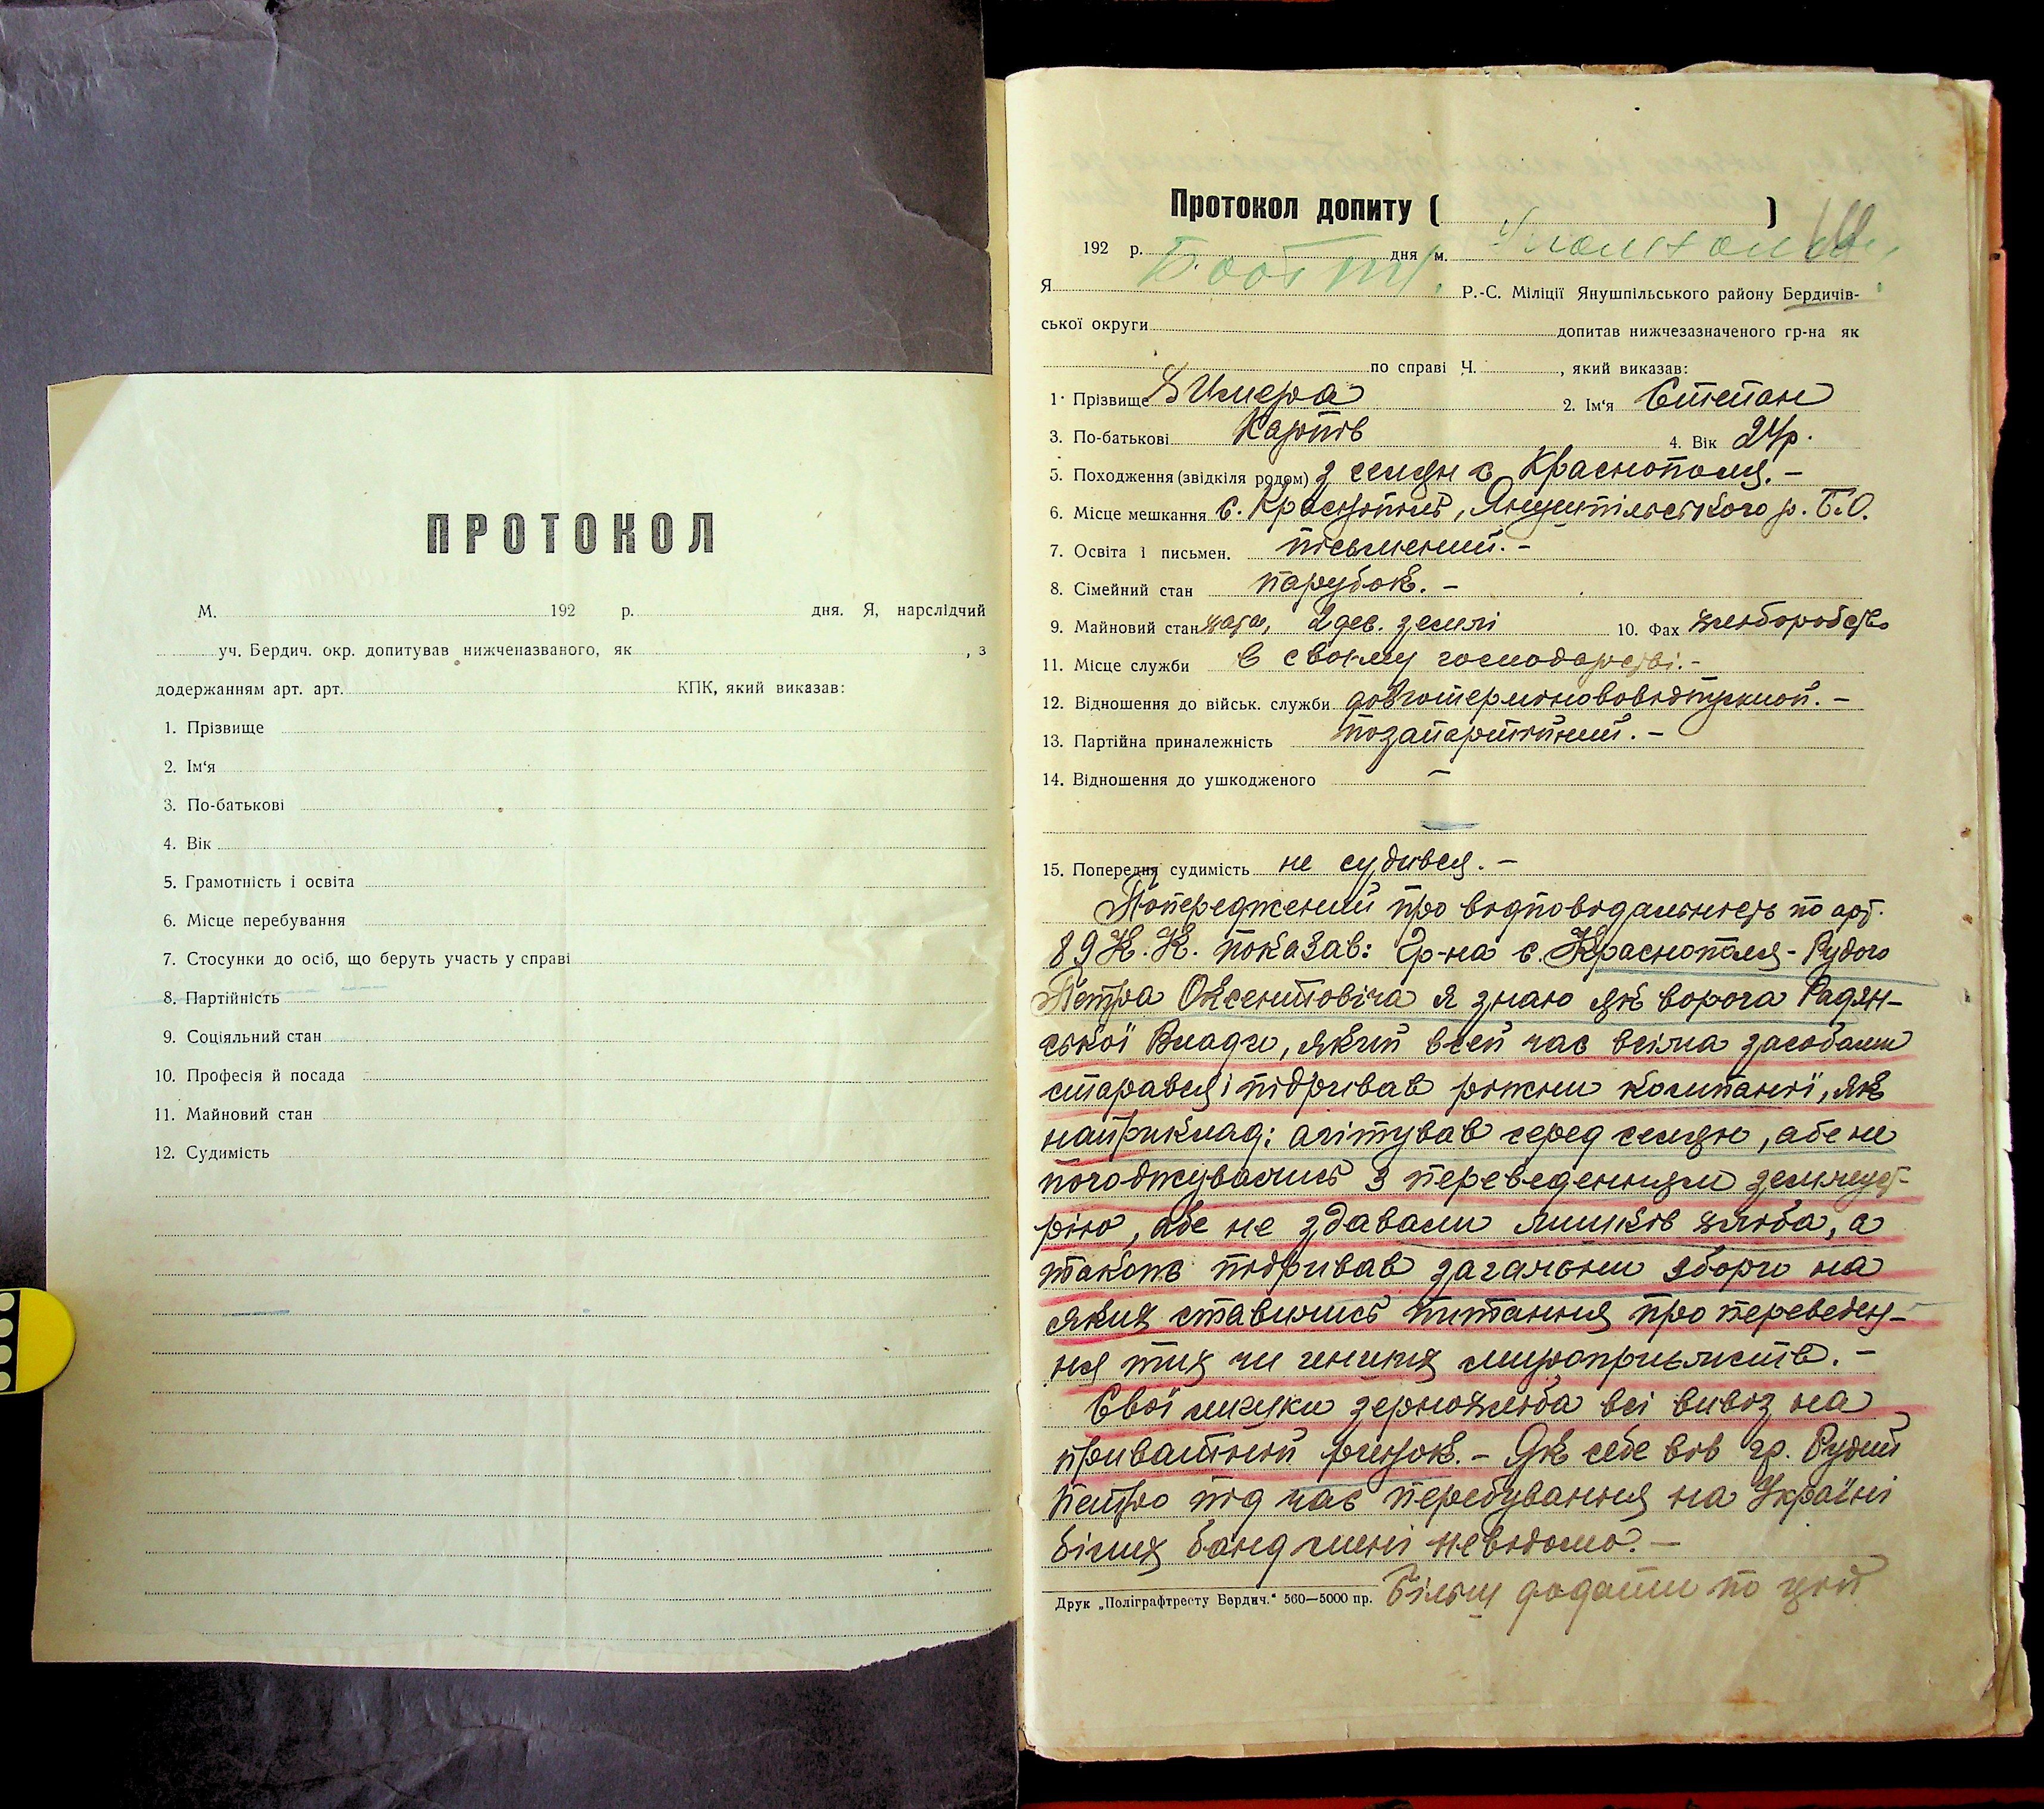 ПРОТОКОЛ
М. 192 р. дня. Я, нарслідчий
уч. Бердич. окр. допитував нижченазваного, як , з
додержанням арт. арт. КПК, який виказав:
1. Прізвище
2. Ім'я
3. По-батькові
4. Вік
5. Грамотність і освіта
6. Місце перебування
7. Стосунки до осіб, що беруть участь у справі
8. Партійність
9. Соціяльний стан
10. Професія й посада
11. Майновий стан
12. Судимість
Протокол допиту ( )
192 р. дня м.
Я Р.-С. Міліції Янушпільського району Бердичів-
ської округи допитав нижчезазначеного гр-на як
по справі Ч. , який виказав:
1. Прізвище 2. Ім'я Степан
3. По-батькові Карпів 4. Вік 24р.
5. Походження (звідкіля родом) з селян с Краснополя. –
6. Місце мешкання с. Краснопіль, Янушпільського р. Б.О.
7. Освіта і письмен. письменний. –
8. Сімейний стан парубок. –
9. Майновий стан хата, 2 дес. землі 10. Фах хліборобств
11. Місце служби в своєму господарстві. –
12. Відношення до військ. служби довготермінововідпускной. –
13. Партійна приналежність позапартійний. –
14. Відношення до ушкодженого –
15. Попередня судимість не судився. –
Попереджений про відповідальність по арт.
89 К. К. показав: Гр-на с. Краснополя - Рудого
Петра Оксентовіча я знаю як ворога Радян-
ської Влади, який всей час всіма засобами
старався і підривав ріжни компанії, як
наприклад: агітував серед селян, абе не
погоджувались з переведенням землеуст-
рію, абе не здавали лишків хліба, а
також підривав загальни збори на
яких ставились питання про переведен-
ня тих чи инших міроприємств. –
Свої лишки зернохліба всі вивоз на
приватний ринок. – Як себе вів гр. Рудий
Петро під час перебування на Україні
білих банд мені невідомо. –
Друк „Поліграфтресту Бердич." 560—5000 пр. Більш додати по цій